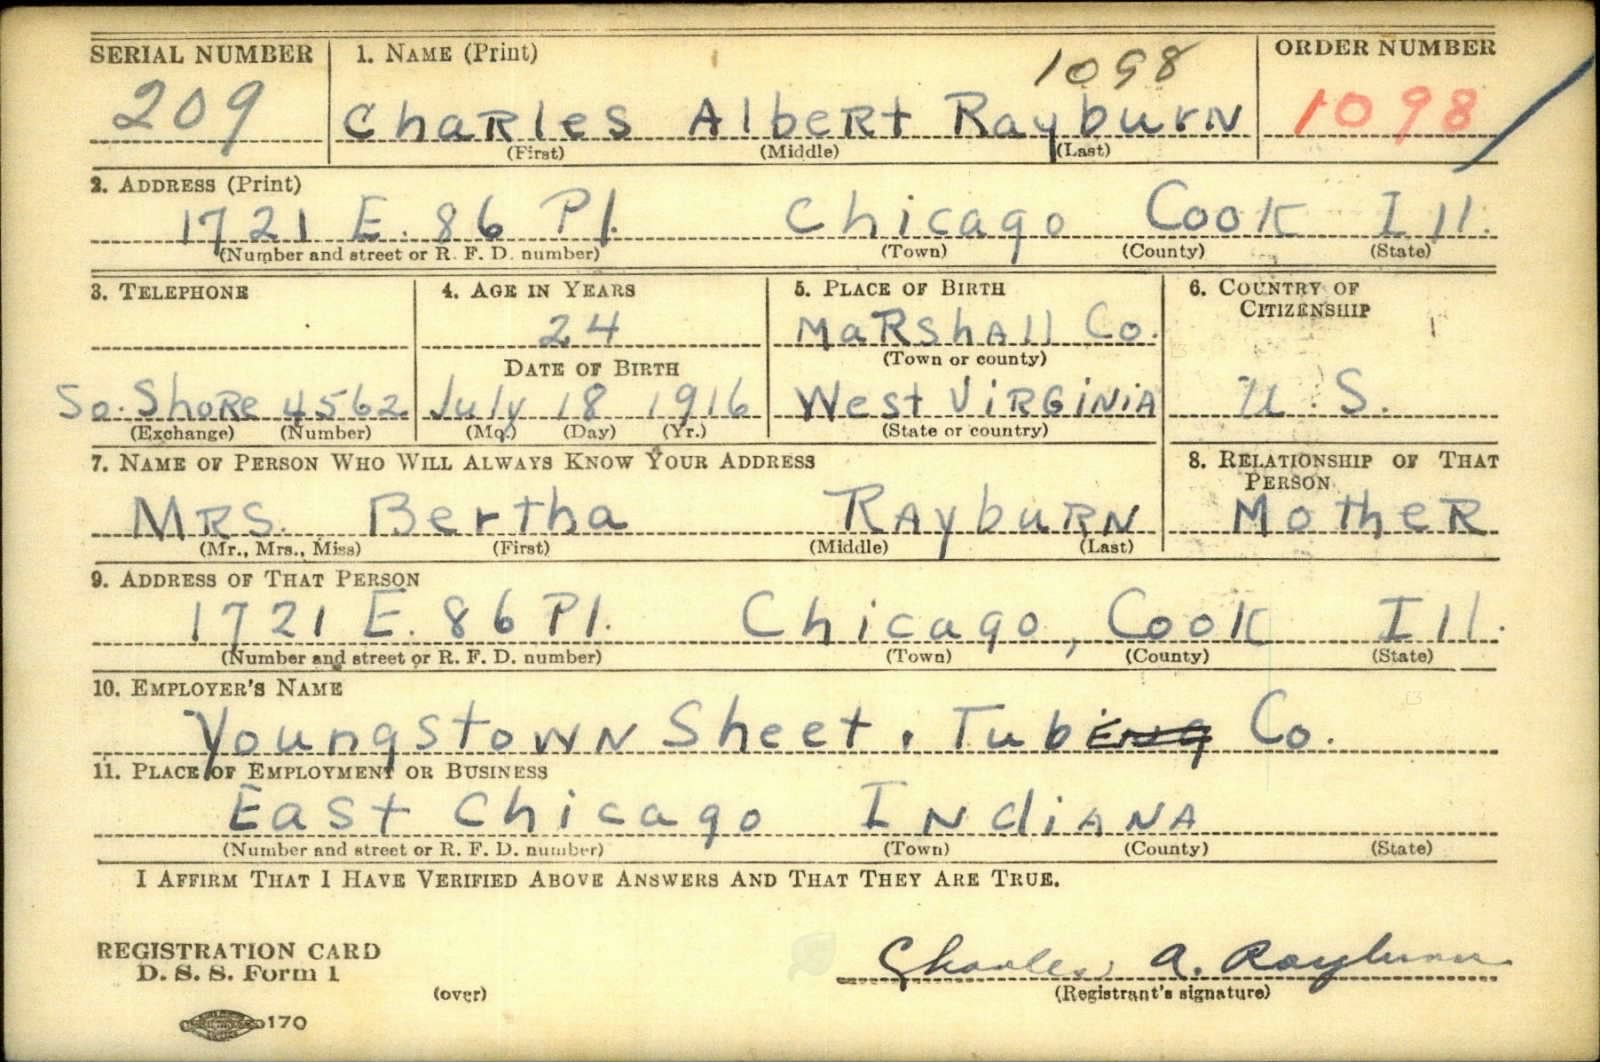 SERIAL NUMBER 1. NAME (Print) ORDER NUMBER
1098
209 Charles Albert Rayburn 1098
(First) (Middle) (Last)
2. ADDRESS (Print)
1721 E. 86 Pl. Chicago Cook Ill.
(Number and street or R. F. D. number) (Town) (County) (State)
3. TELEPHONE 4. AGE IN YEARS 5. PLACE OF BIRTH 6. COUNTRY OF
CITIZENSHIP
24 Marshall Co.
(Town or county)
DATE OF BIRTH
So. Shore 4562 July 18 1916 West Virginia U.S.
(Exchange) (Number) (Mo.) (Day) (Yr.) (State or country)
7. NAME OF PERSON WHO WILL ALWAYS KNOW YOUR ADDRESS 8. RELATIONSHIP OF THAT
PERSON
Mrs. Bertha Rayburn Mother
(Mr., Mrs., Miss) (First) (Middle) (Last)
9. ADDRESS OF THAT PERSON
1721 E. 86 Pl. Chicago, Cook Ill.
(Number and street or R. F. D. number) (Town) (County) (State)
10. EMPLOYER'S NAME
Youngstown Sheet. Tubing Co.
11. PLACE OF EMPLOYMENT OR BUSINESS
East Chicago Indiana
(Number and street or R. F. D. number) (Town) (County) (State)
I AFFIRM THAT I HAVE VERIFIED ABOVE ANSWERS AND THAT THEY ARE TRUE.
REGISTRATION CARD
D. S. S. Form 1
Charles A. Rayburn
(over) (Registrant's signature)
170